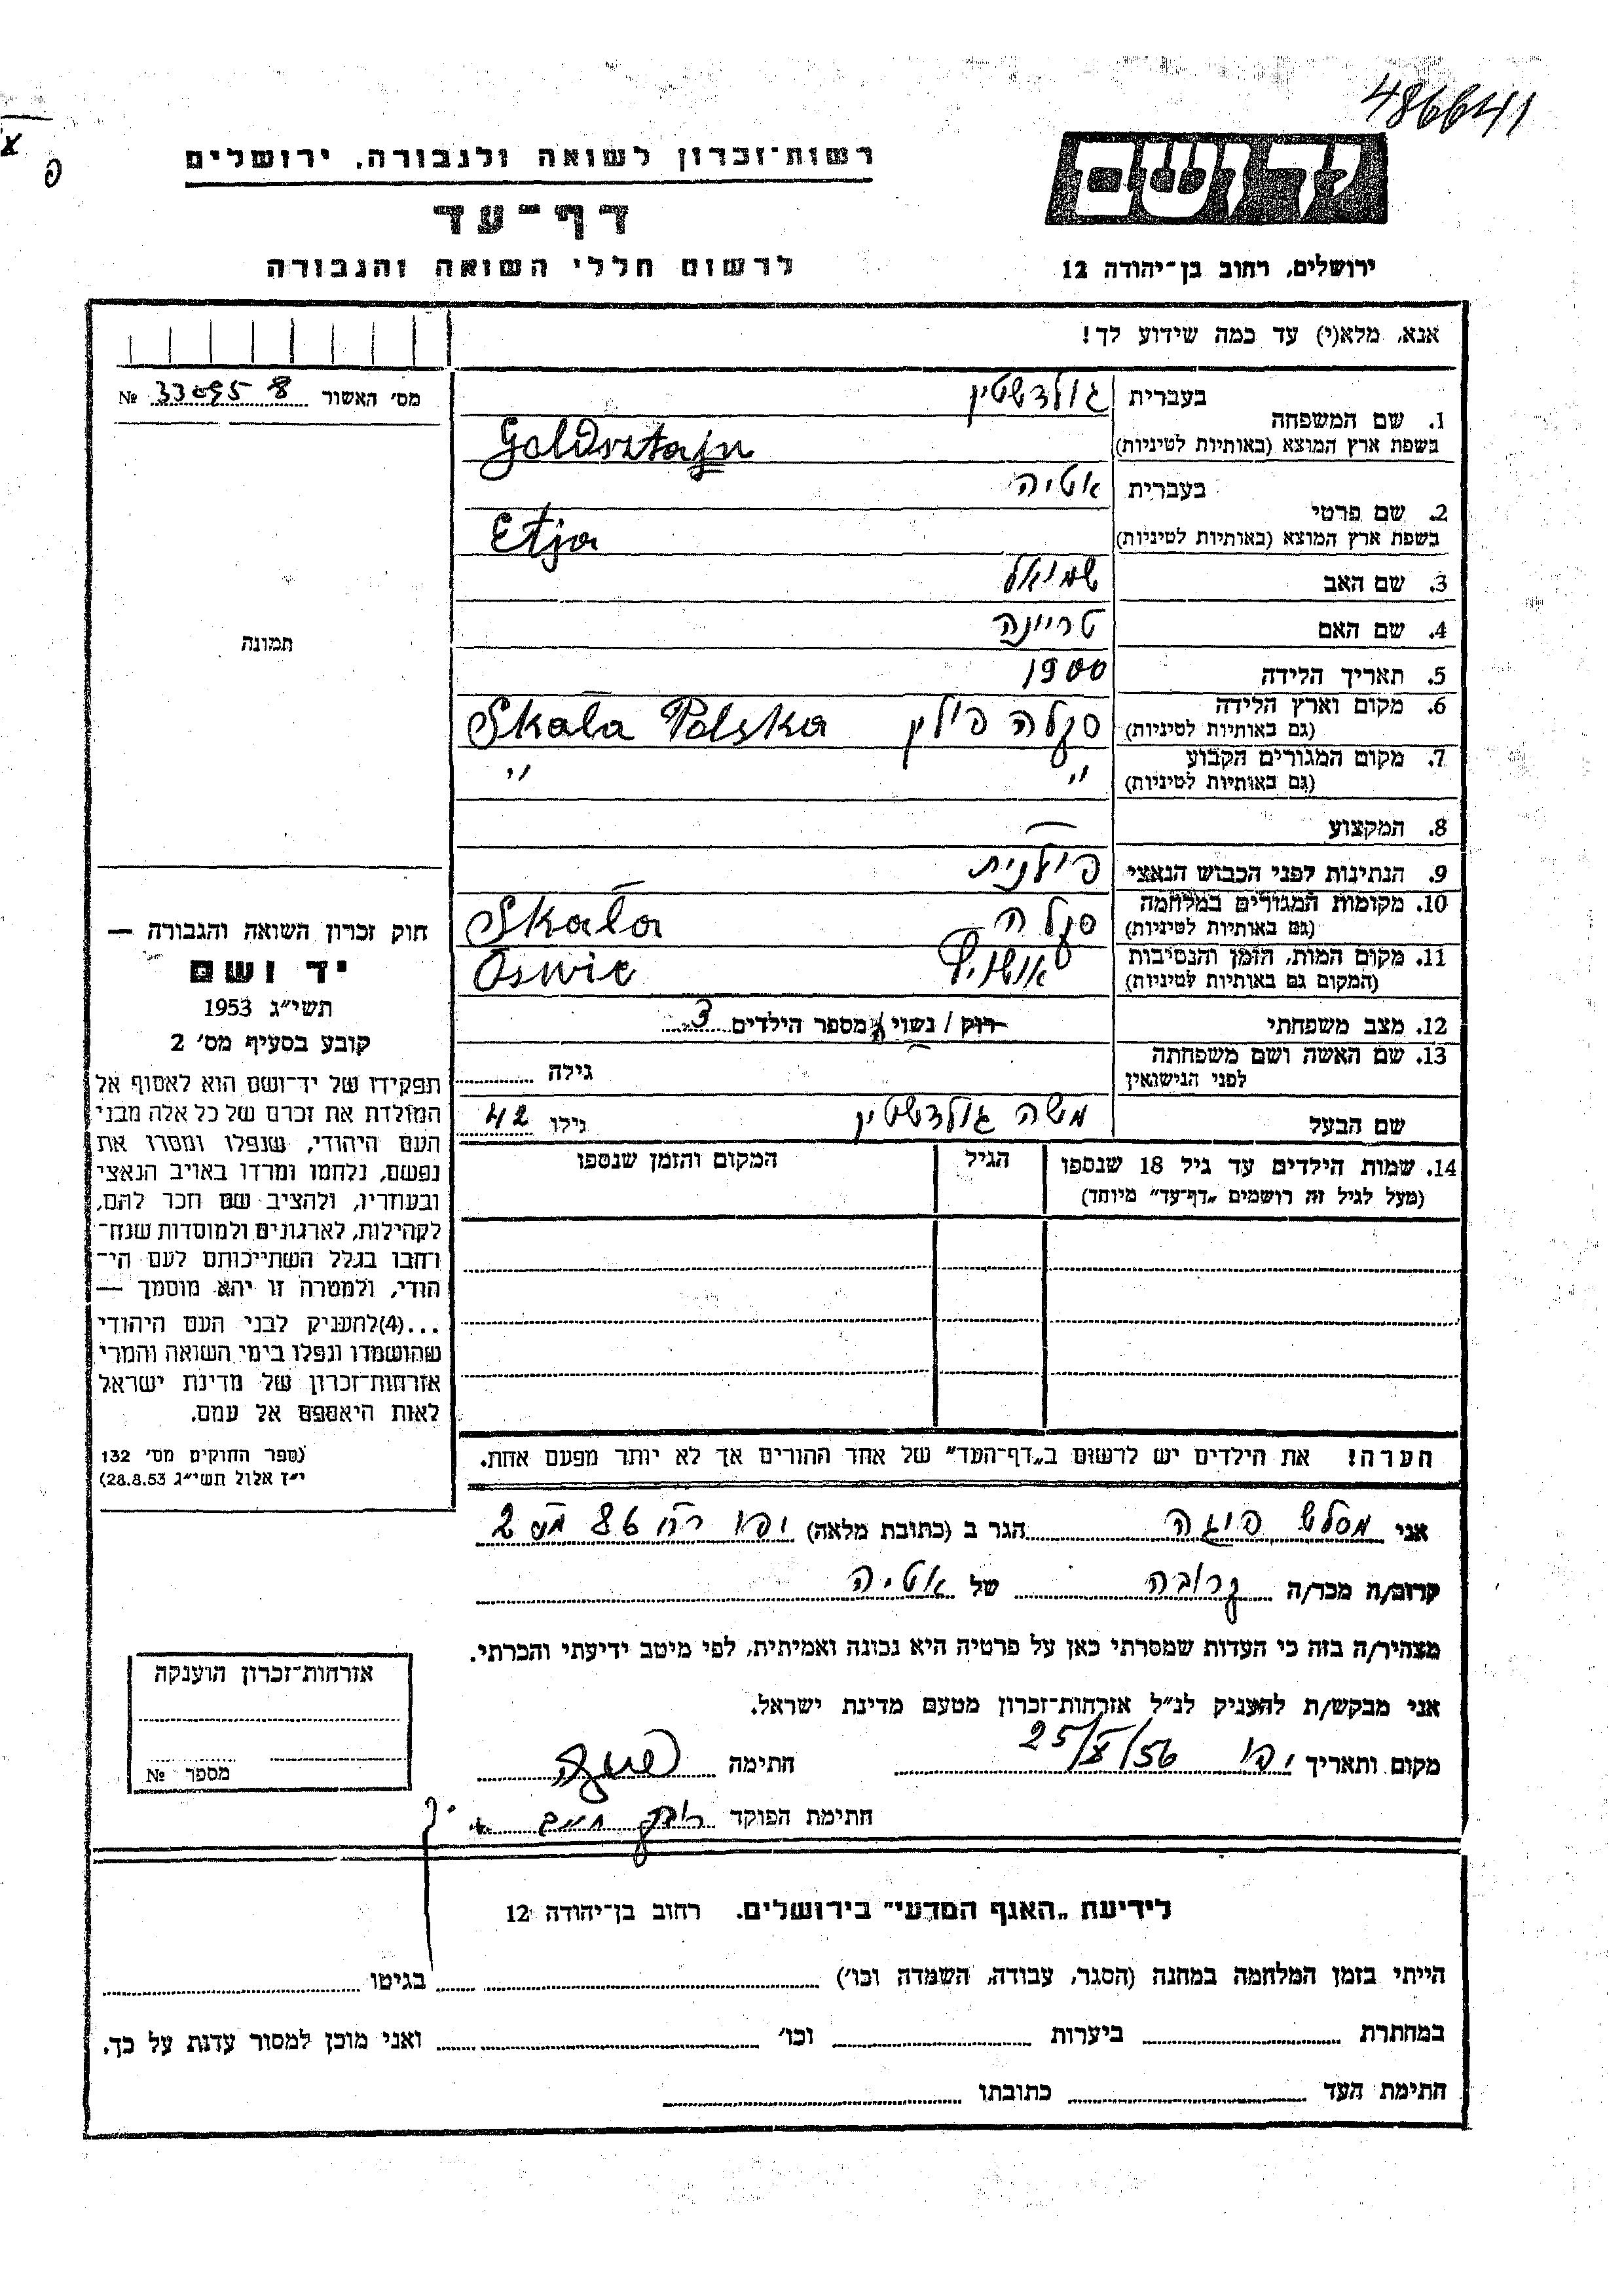 486641
רשות־זכרון לשואה ולגבורה, ירושלים
דף־עד
לרשום חללי השואה והגבורה
יד ושם
ירושלים, רחוב בן־יהודה 12
אנא, מלא(י) עד כמה שידוע לך!
מס׳ האשור № 330958
תמונה
1. שם המשפחה בעברית גולדשטין
בשפת ארץ המוצא (באותיות לטיניות) Goldsztajn
2. שם פרטי בעברית אטיה
בשפת ארץ המוצא (באותיות לטיניות) Etja
3. שם האב שמואל
4. שם האם טריינה
5. תאריך הלידה 1900
6. מקום וארץ הלידה סקלה פולין Skala Polska
(גם באותיות לטיניות)
7. מקום המגורים הקבוע " "
(גם באותיות לטיניות)
8. המקצוע —
9. הנתינות לפני הכבוש הנאצי פולנית
10. מקומות המגורים במלחמה סקלה Skała
(גם באותיות לטיניות)
11. מקום המות, הזמן והנסיבות Oswic
(המקום גם באותיות לטיניות)
12. מצב משפחתי רוק / נשוי / מספר הילדים 3
13. שם האשה ושם משפחתה — גילה
לפני הנישואין
שם הבעל משה גולדשטין גילו 42
14. שמות הילדים עד גיל 18 שנספו הגיל המקום והזמן שנספו
(מעל לגיל זה רושמים „דף־עד” מיוחד)
הערה! את הילדים יש לרשום ב„דף־העד” של אחד ההורים אך לא יותר מפעם אחת.
חוק זכרון השואה והגבורה —
יד ושם
תשי״ג 1953
קובע בסעיף מס׳ 2
תפקידו של יד־ושם הוא לאסוף אל
המולדת את זכרם של כל אלה מבני
העם היהודי, שנפלו ומסרו את
נפשם, נלחמו ומרדו באויב הנאצי
ובעוזריו, ולהציב שם וזכר להם,
לקהילות, לארגונים ולמוסדות שנח־
רבו בגלל השתייכותם לעם הי־
הודי, ולמטרה זו יהא מוסמך —
...(4)להעניק לבני העם היהודי
שהושמדו ונפלו בימי השואה והמרי
אזרחות־זכרון של מדינת ישראל
לאות היאספם אל עמם.
(ספר החוקים מס׳ 132
י״ז אלול תשי״ג 28.8.53)
אני מסלט פיגה הגר ב (כתובת מלאה) יפו רח 86 מס 2
קרוב/ה מכר/ה קרובה של אטיה
מצהיר/ה בזה כי העדות שמסרתי כאן על פרטיה היא נכונה ואמיתית, לפי מיטב ידיעתי והכרתי.
אני מבקש/ת להעניק לנ״ל אזרחות־זכרון מטעם מדינת ישראל.
מקום ותאריך יפו 25/X/56 חתימה
חתימת הפוקד
אזרחות־זכרון הוענקה
מספר №
לידיעת „האגף המדעי” בירושלים. רחוב בן־יהודה 12
הייתי בזמן המלחמה במחנה (הסגר, עבודה, השמדה וכו׳) בגיטו
במחתרת ביערות וכו׳ ואני מוכן למסור עדות על כך.
חתימת העד כתובתו